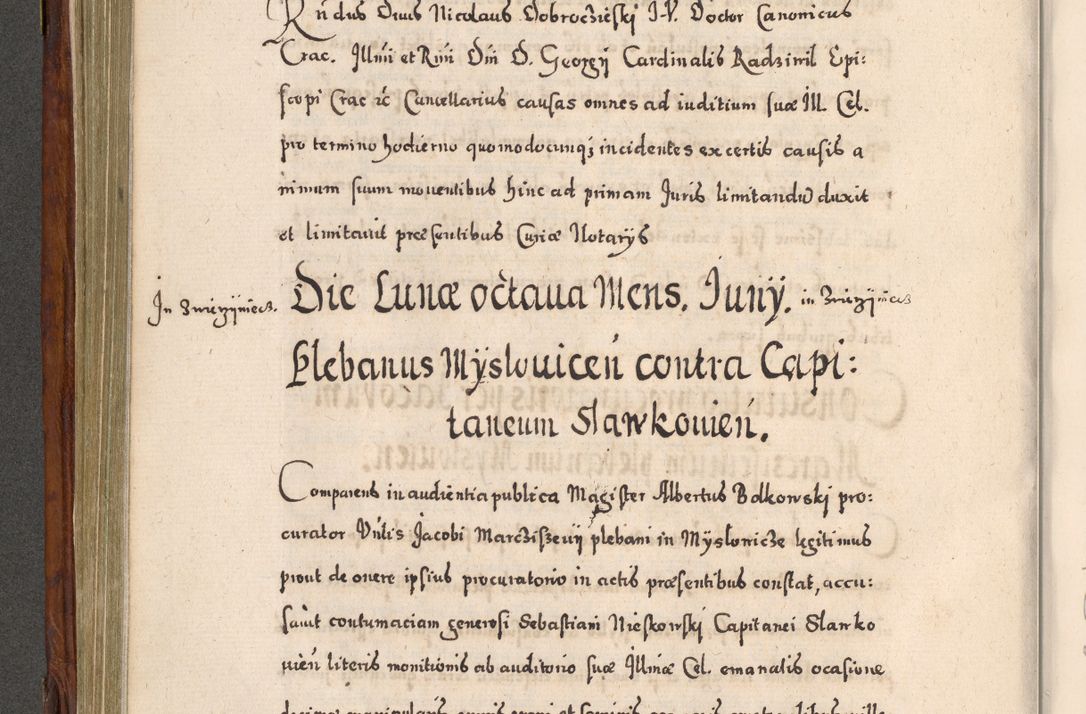 Rńdus Dnus Nicolaus Dobrocżieski I. V. Doctor Canonicus
Crac. Illmi et Rmi Dni D. Georgij Cardinalis Radziwil Epi:
scopi Crac etc Cancellarius causas omnes ad iuditium suæ Ill. Cel.
pro termino hodierno quomodocunq; incidentes ex certis causis a
nimum suum mouentibus hinc ad primam Juris limitandū duxit
et limitauit præsentibus Curiæ Notarijs
In Zwierzyniecz. Die Lunæ octaua Mens. Junÿ. in Zwierzyniecz
Plebanus Mÿslouiceń contra Capi:
taneum Slawkouień.
Comparens in audientia publica Magister Albertus Bolkowskj pro:
curator Vnlis Jacobi Marcżiszewij plebani in Mysłowicże legitimus
prout de onere ipsius procuratorio in actis præsentibus constat, accu:
sauit contumaciam generosi Sebastiani Nieskowskj Capitanei Slawko
uień literis monitionis ab auditorio suæ Illmæ Cel. emanatis ocasione
decimæ manipularis